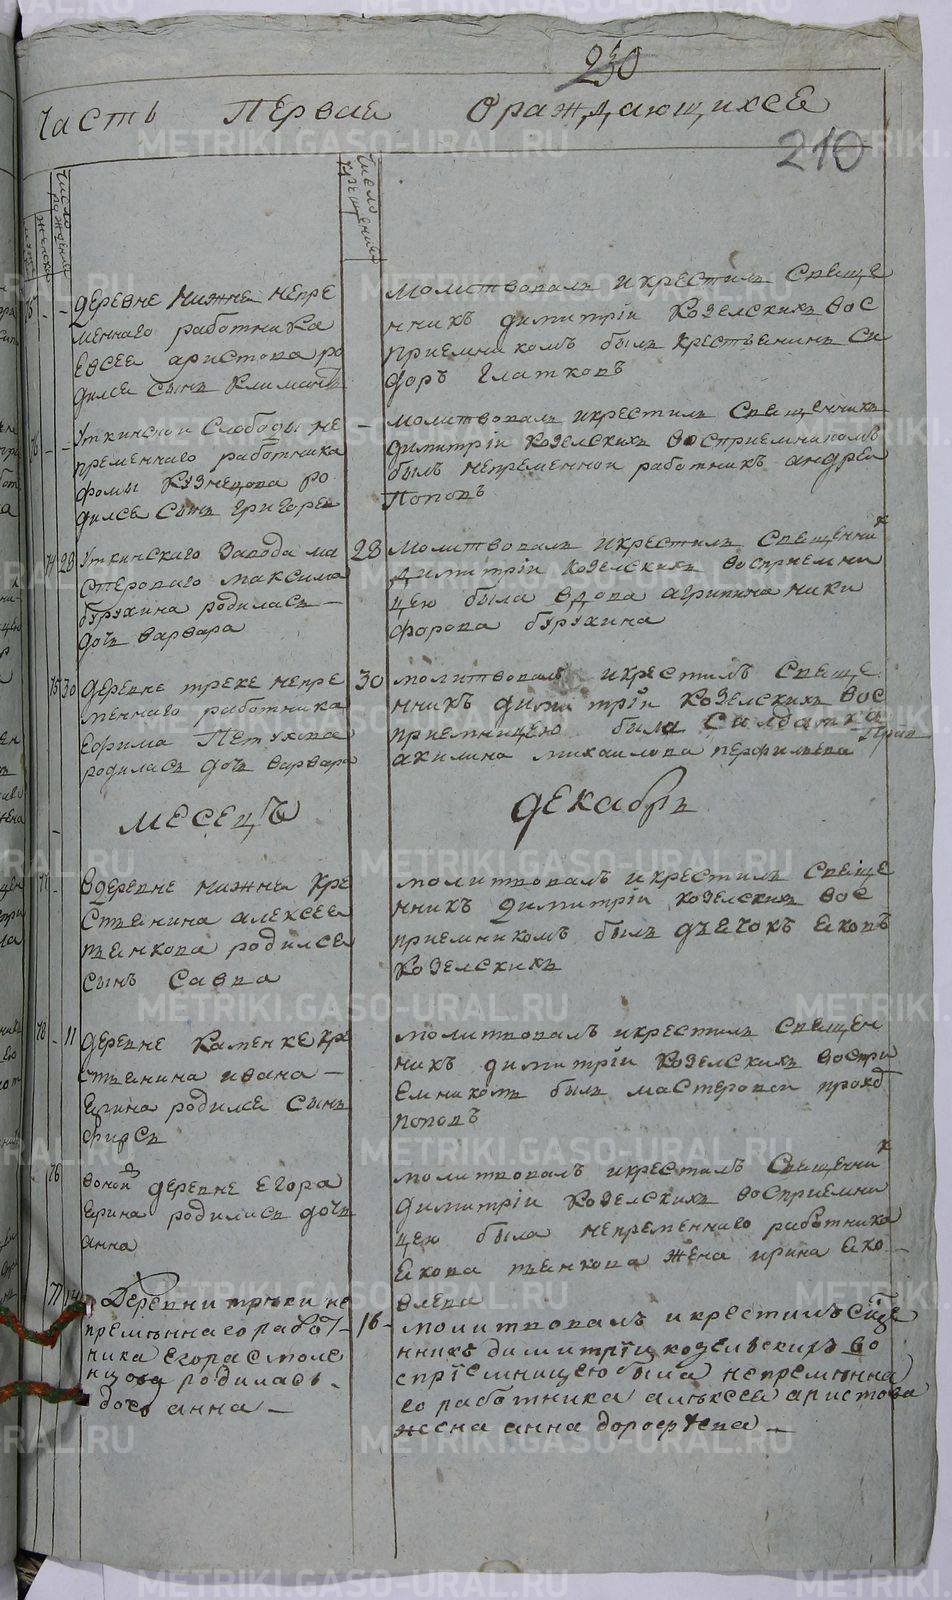 230
Часть Первае Ораждающихсе
210
Число рождения
Число крещения
75 деревне нижне непре
менного работника
Евсея аристова ро
дилсе сынъ Климантъ
молитвовалъ и крестилъ Свеще
нникъ димитріи Козелскихъ вос
приемникомъ былъ крестьенинъ Си
доръ Глатковъ
76 Уткинскои Слободы не
пременнаго работника
фомы Кузнецова ро
дилсе сынъ Григореи
молитвовалъ и крестилъ Свещенникъ
димитріи козелскихъ восприемникомъ
былъ непременнои работникъ андреи
Поповъ
74 28 Уткинскаго Завода ма
стероваго максима
бурухина родиласъ
дочъ варвара
28 молитвовалъ и крестилъ Свещенникъ
димитріи козелскихъ восприемни
цею была вдова агрипина ники
форова бурухина
75 30 деревне треке непре
менного работника
Ефима Петухова
родиласъ дочъ варвара
30 молитвовалъ и крестилъ Свеще
нникъ димитріи Козелскихъ вос
приемницею была Салдатка
акилина михаилова перфильева
месецъ декабръ
77 Вдеревне нижне кре
стьенина алексеа
пенкова родилсе
сынъ Савва
молитвовалъ и крестилъ Свеще
нникъ димитріи козелскихъ вос
приемникомъ былъ дъечокъ ековъ
козелскихъ
78 11 деревне каменке кре
стьенина ивана
ерина родилсе сынъ
фирсъ
молитвовалъ и крестилъ Свещен
никъ димитріи козелскихъ воспри
емникомъ былъ мастеровои прохоръ
поповъ
76 вонои деревне Егора
ерина родиласъ дочъ
анна
молитвовалъ и крестилъ Свещенникъ
димитріи козелскихъ восприемни
цею была непременнаго работника
екова пенкова жена ирина еко
влева
77 14 Деревни трѣки не
премѣннаго работ
ника Егора смоле
нцова родилась
дочь анна
16 молитвовалъ и крестилъ Сще
нникъ димитріи козельскихъ во
спріемницею была непремѣнна
го работника алѣксеа аристова
жена анна дорофѣева
METRIKI.GASO-URAL.RU